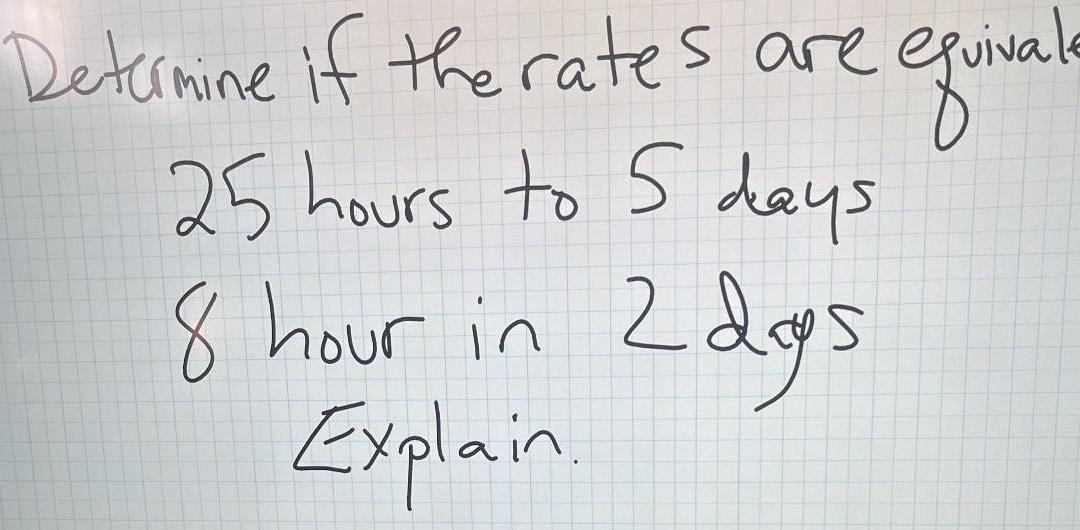 Determine if the rates are equivale
25 hours to 5 days
8 hour in 2 days
Explain.